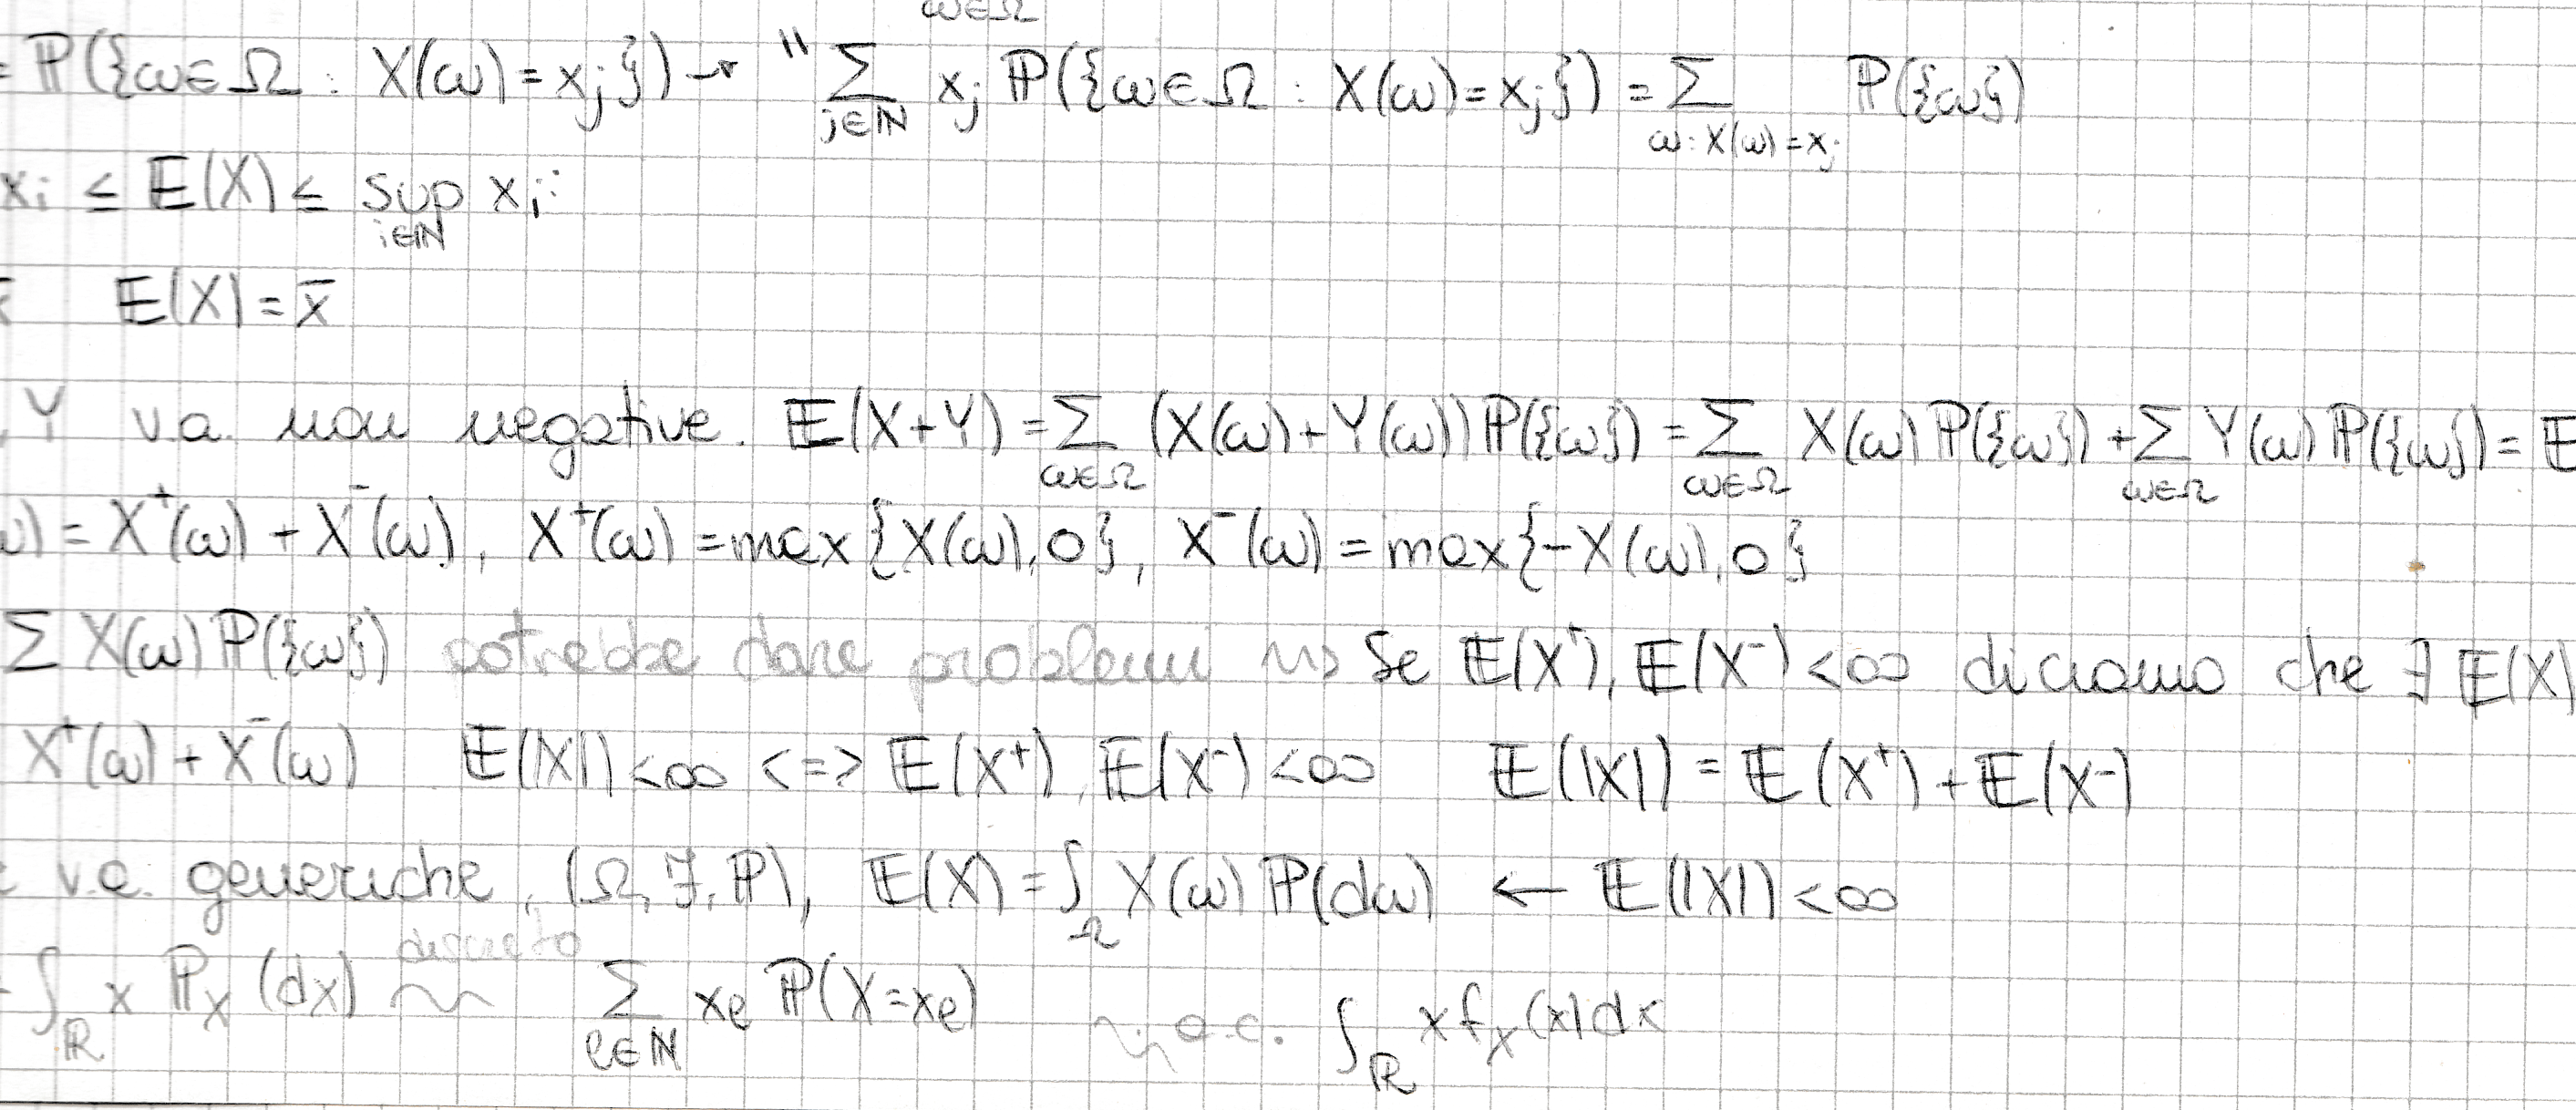 ω∈Ω
= ℙ({ω∈Ω : X(ω) = xj}) → "∑_{j∈ℕ} xj ℙ({ω∈Ω : X(ω) = xj}) = ∑_{ω: X(ω) = xj} ℙ({ω})
xi ≤ 𝔼(X) ≤ sup_{i∈ℕ} xi
𝔼(X) = x̄
, Y v.a. non negative. 𝔼(X+Y) = ∑_{ω∈Ω} (X(ω)+Y(ω)) ℙ({ω}) = ∑_{ω∈Ω} X(ω) ℙ({ω}) + ∑_{ω∈Ω} Y(ω) ℙ({ω}) = 𝔼
ω) = X⁺(ω) + X⁻(ω), X⁺(ω) = max{X(ω), 0}, X⁻(ω) = max{-X(ω), 0}
∑ X(ω) ℙ({ω}) potrebbe dare problemi ⇝ Se 𝔼(X⁺), 𝔼(X⁻) < ∞ diciamo che ∃ 𝔼(X)
X⁺(ω) + X⁻(ω) 𝔼(|X|) < ∞ <=> 𝔼(X⁺), 𝔼(X⁻) < ∞ 𝔼(|X|) = 𝔼(X⁺) + 𝔼(X⁻)
v.a. generiche, (Ω, ℱ, ℙ), 𝔼(X) = ∫_Ω X(ω) ℙ(dω) ← 𝔼(|X|) < ∞
∫_ℝ x ℙ_X (dx) discreto ∑_{ℓ∈ℕ} xℓ ℙ(X = xℓ) a.c. ∫_ℝ x f_X(x) dx